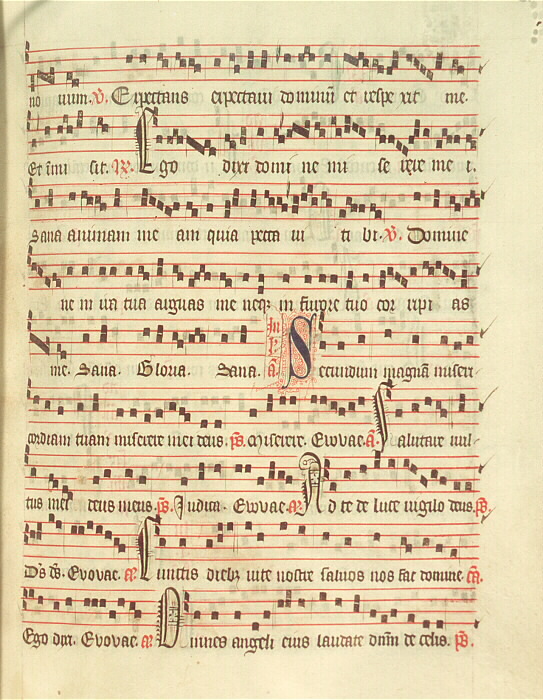 no uum. ℣. Expectans expectaui dominū et respe xit me.
Et īmi sit. ℟. Ego dixi domi ne mi se rere me i.
Sana animam me am quia pecca ui ti bi. ℣. Domine
ne in ira tua arguas me neqꝫ in furore tuo cor ripi as
me. Sana. Gloria. Sana. Secundum magnā miseri-
cordiam tuam miserere mei deus. ps. Miserere. Euouae. a. Salutare uul-
tus mei deus meus. ps. Iudica. Euouae. a. Ad te de luce uigilo deus. ps.
Ds ds. Euouae. a. Cunctis diebꝫ uite nostre saluos nos fac domine. ca.
Ego dixi. Euouae. a. Omnes angeli eius laudate dnm de celis. ps.